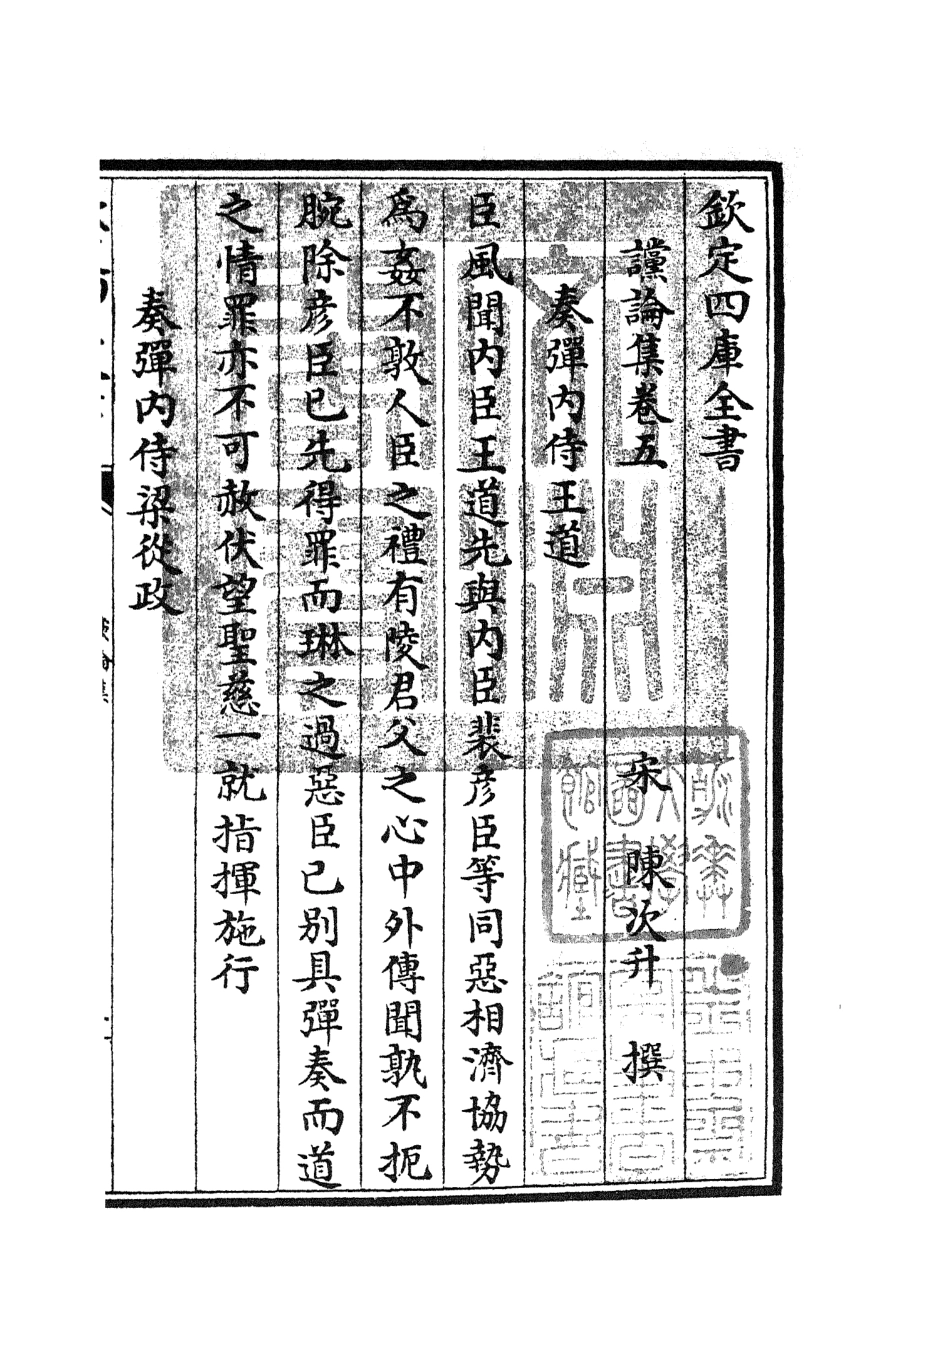 欽定四庫全書
讜論集卷五
宋 陳次升 撰
奏彈内侍王道
臣風聞内臣王道先與内臣裴彦臣等同惡相濟協勢
為姦不敦人臣之禮有陵君父之心中外傳聞孰不扼
腕除彦臣已先得罪而琳之過惡臣已别具彈奏而道
之情罪亦不可赦伏望聖慈一就指揮施行
奏彈内侍梁從政